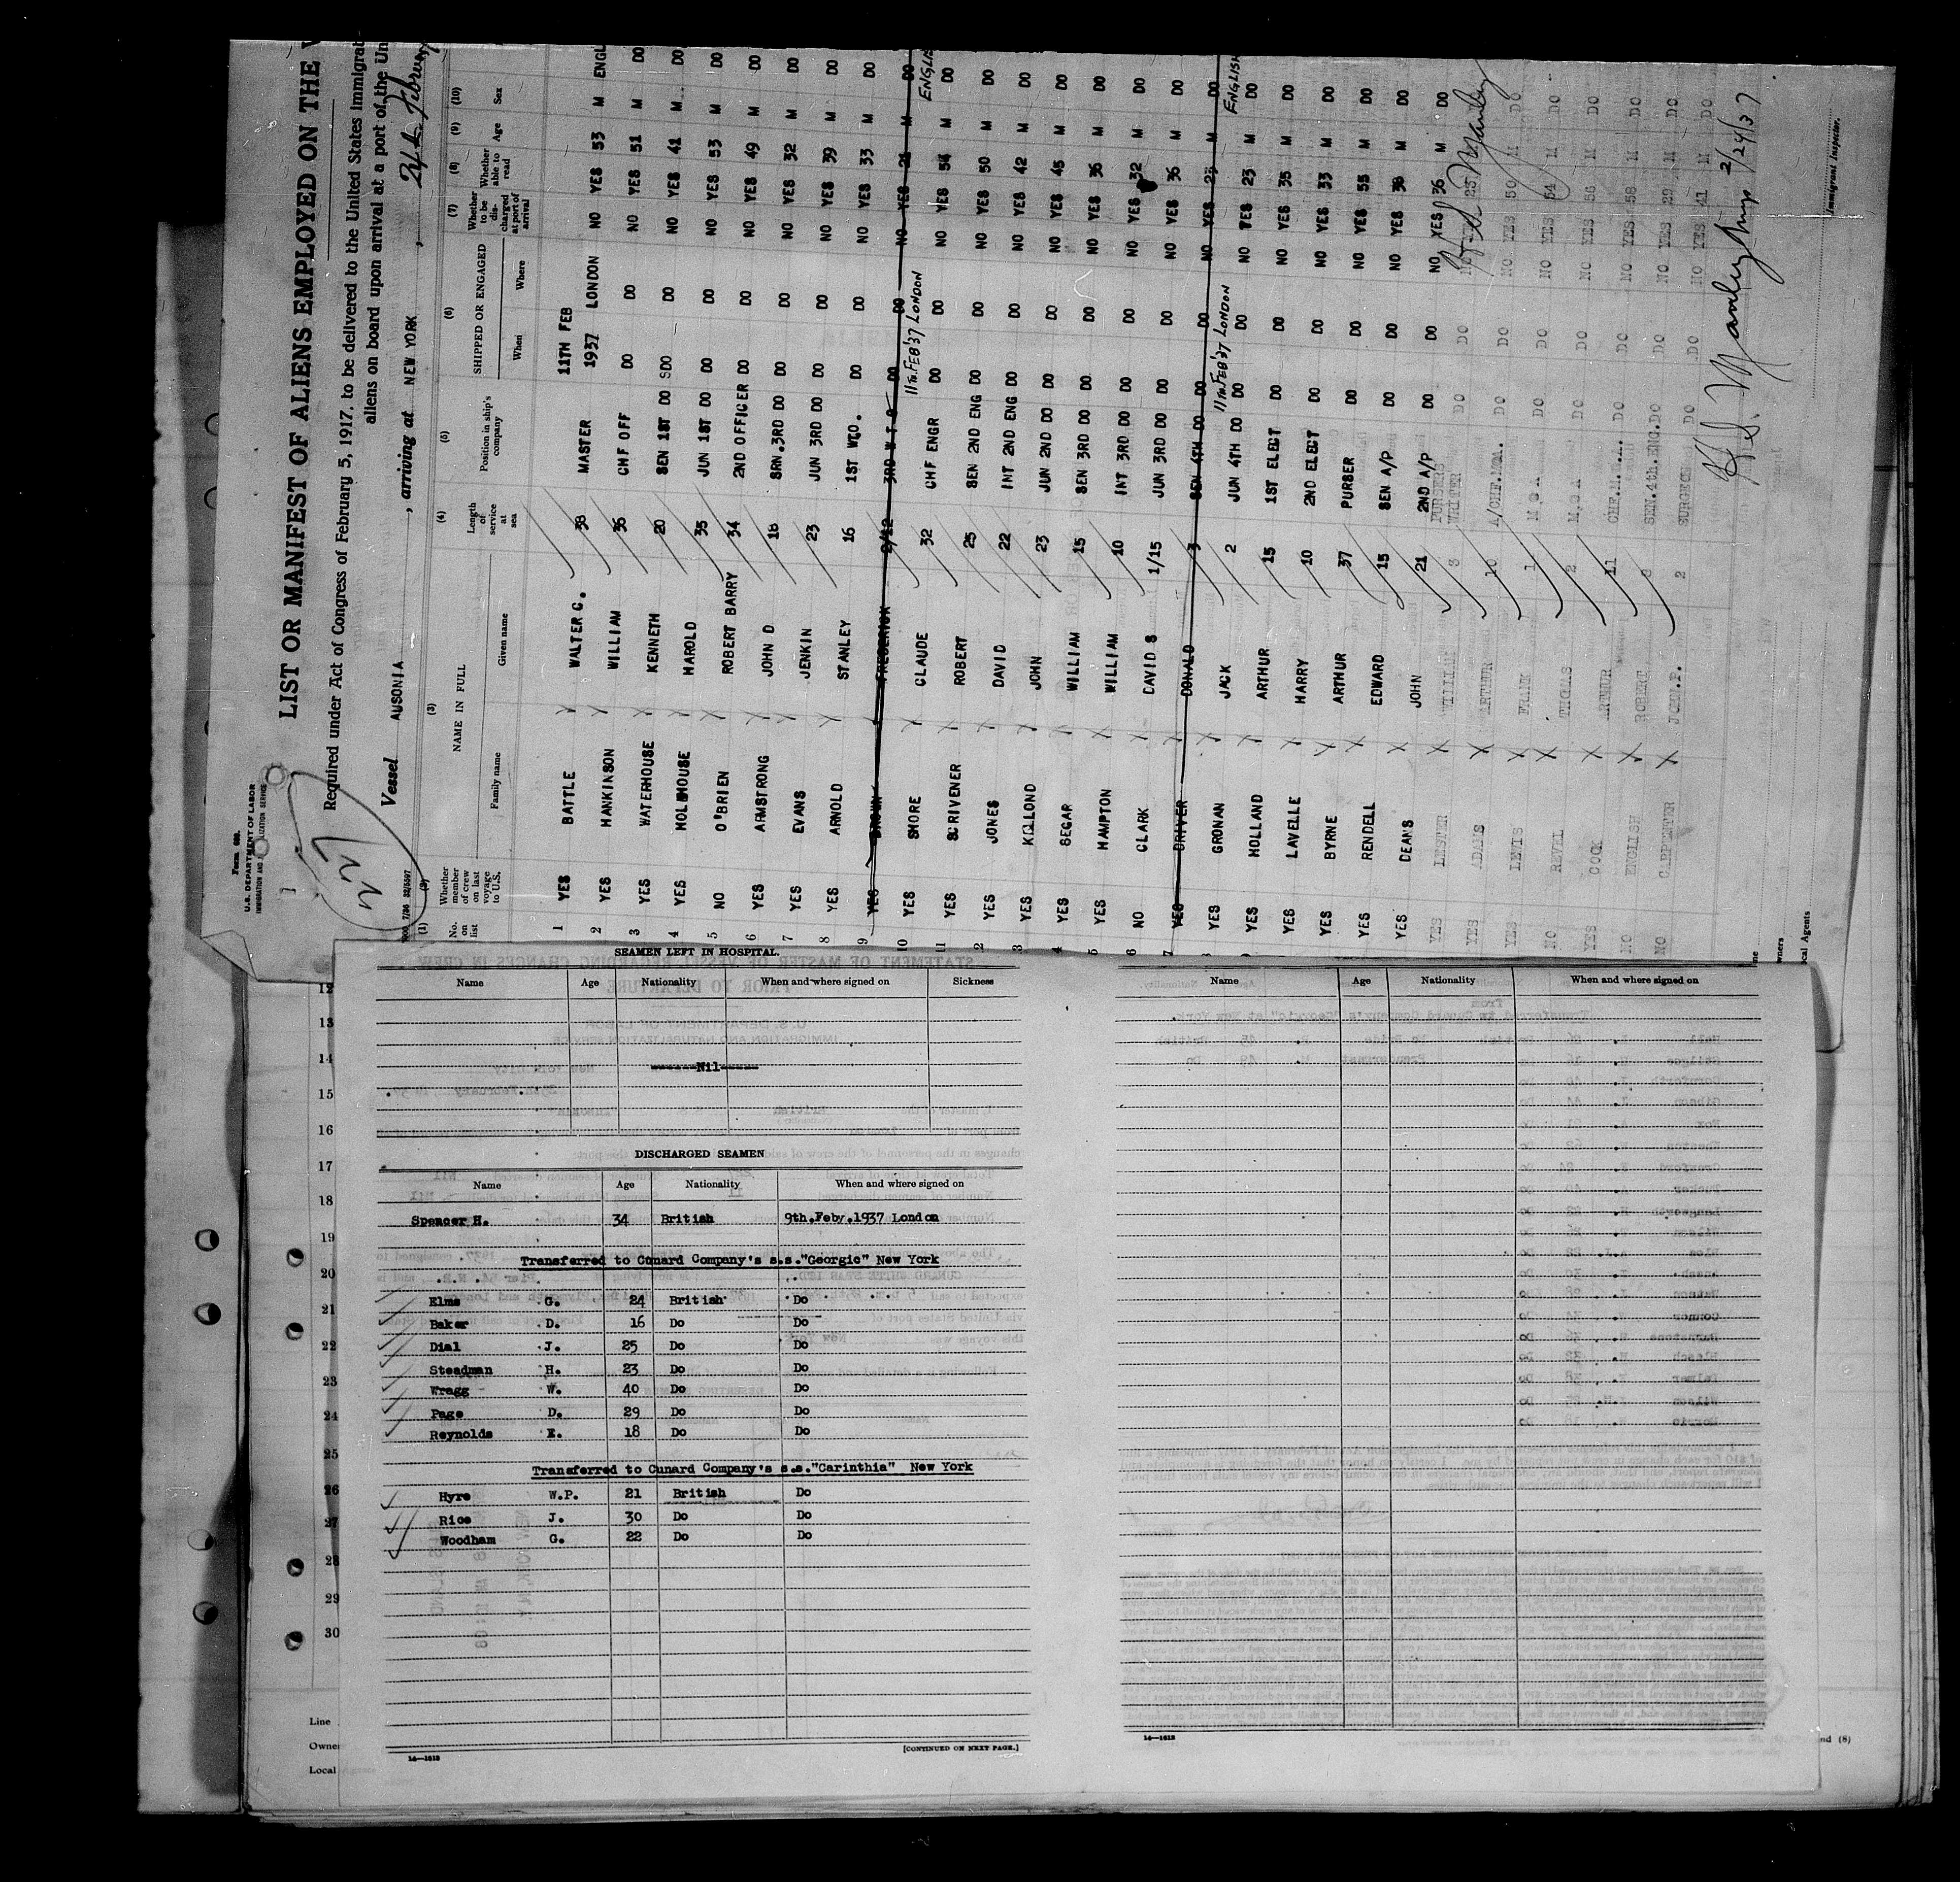 Form 689.
U. S. DEPARTMENT OF LABOR
IMMIGRATION AND NATURALIZATION SERVICE
LIST OR MANIFEST OF ALIENS EMPLOYED ON THE
Required under Act of Congress of February 5, 1917, to be delivered to the United States immigrat
aliens on board upon arrival at a port of the Un
Vessel AUSONIA , arriving at NEW YORK , 24th February
(1) (2) (3) (4) (5) (6) (7) (8) (9) (10)
No. on list Whether member of crew on last voyage to U.S. NAME IN FULL Family name Given name Length of service at sea Position in ship's company SHIPPED OR ENGAGED When Where Whether to be discharged at port of arrival Whether able to read Age Sex
11TH FEB
1 YES BATTLE WALTER C. 38 MASTER 1937 LONDON NO YES 53 M ENGL
2 YES HANKINSON WILLIAM 36 CHF OFF DO DO NO YES 51 M DO
3 YES WATERHOUSE KENNETH 20 SEN 1ST DO DO DO NO YES 41 M DO
4 YES HOLEHOUSE HAROLD 35 JUN 1ST DO DO DO NO YES 53 M DO
5 NO O'BRIEN ROBERT BARRY 34 2ND OFFICER DO DO NO YES 49 M DO
6 YES ARMSTRONG JOHN D 18 SRN.3RD DO DO DO NO YES 32 M DO
7 YES EVANS JENKIN 23 JUN 3RD DO DO DO NO YES 39 M DO
8 YES ARNOLD STANLEY 16 1ST WTO. DO DO NO YES 33 M DO
9 YES BROWN FREDERICK 2/12 3RD W.T.O DO DO NO YES 21 M DO
11TH.FEB'37 LONDON ENGLIS
10 YES SHORE CLAUDE 32 CHF ENGR DO DO NO YES 54 M DO
11 YES SCRIVENER ROBERT 25 SEN 2ND ENG DO DO NO YES 50 M DO
2 YES JONES DAVID 22 INT 2ND ENG DO DO NO YES 42 M DO
3 YES KOLLOND JOHN 23 JUN 2ND DO DO DO NO YES 45 M DO
4 YES SEGAR WILLIAM 15 SEN 3RD DO DO DO NO YES 36 M DO
5 YES HAMPTON WILLIAM 10 INT 3RD DO DO DO NO YES 32 M DO
6 NO CLARK DAVID S 1/15 JUN 3RD DO DO DO NO YES 36 M DO
7 YES DRIVER DONALD 3 SEN 4TH DO DO DO NO YES 23 M DO
11TH.FEB'37 LONDON ENGLISH
YES GRONAN JACK 2 JUN 4TH DO DO DO NO YES 23 M DO
YES HOLLAND ARTHUR 15 1ST ELECT DO DO NO YES 35 M DO
YES LAVELLE HARRY 10 2ND ELECT DO DO NO YES 33 M DO
YES BYRNE ARTHUR 37 PURSER DO DO NO YES 55 M DO
YES RENDELL EDWARD 15 SEN A/P DO DO NO YES 38 M DO
YES DEANS JOHN 21 2ND A/P DO DO NO YES 36 M DO
YES LESTER 3 PURSERS WRITER DO DO NO YES 25
YES ADAMS ARTHUR 10 A/CHF. DO DO NO YES 50 M DO
YES LEWIS FRANK 1 DO DO NO YES 54 M DO
NO REVEL THOMAS 2 DO DO NO YES 56 M DO
YES COOK ARTHUR 11 DO DO NO YES 58 M DO
NO ENGLISH ROBERT 8 SEN.4th.ENG. DO DO NO YES 29 M DO
NO CARPENTER JOHN.P. 2 SURGEON DO DO NO YES 41 M DO
2/24/37
Immigrant Inspector.
SEAMEN LEFT IN HOSPITAL.
Name Age Nationality When and where signed on Sickness
Nil
DISCHARGED SEAMEN
Name Age Nationality When and where signed on
Spencer H. 34 British 9th.Feby.1937 London
Transferred to Cunard Company's s.s."Georgic" New York
Elms G. 24 British Do
Baker D. 16 Do Do
Dial J. 25 Do Do
Steadman H. 23 Do Do
Wragg W. 40 Do Do
Page D. 29 Do Do
Reynolds E. 18 Do Do
Transferred to Cunard Company's s.s."Carinthia" New York
Hyre W.P. 21 British Do
Rice J. 30 Do Do
Woodham G. 22 Do Do
14—1613
[CONTINUED ON NEXT PAGE.]
Name Age Nationality When and where signed on
14—1613
12
13
14
15
16
17
18
19
20
21
22
23
24
25
26
27
28
29
30
Line
Owner
Local
nd (8)